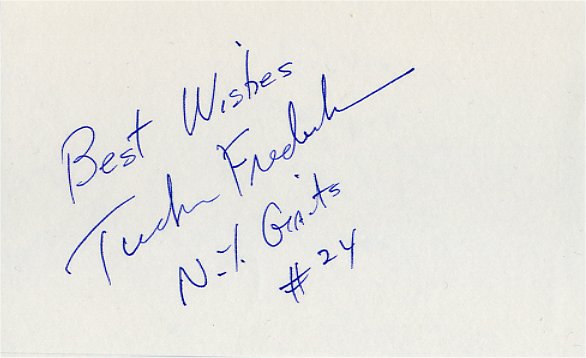 Best Wishes
Tucker Frederickson
N.Y. Giants
#24